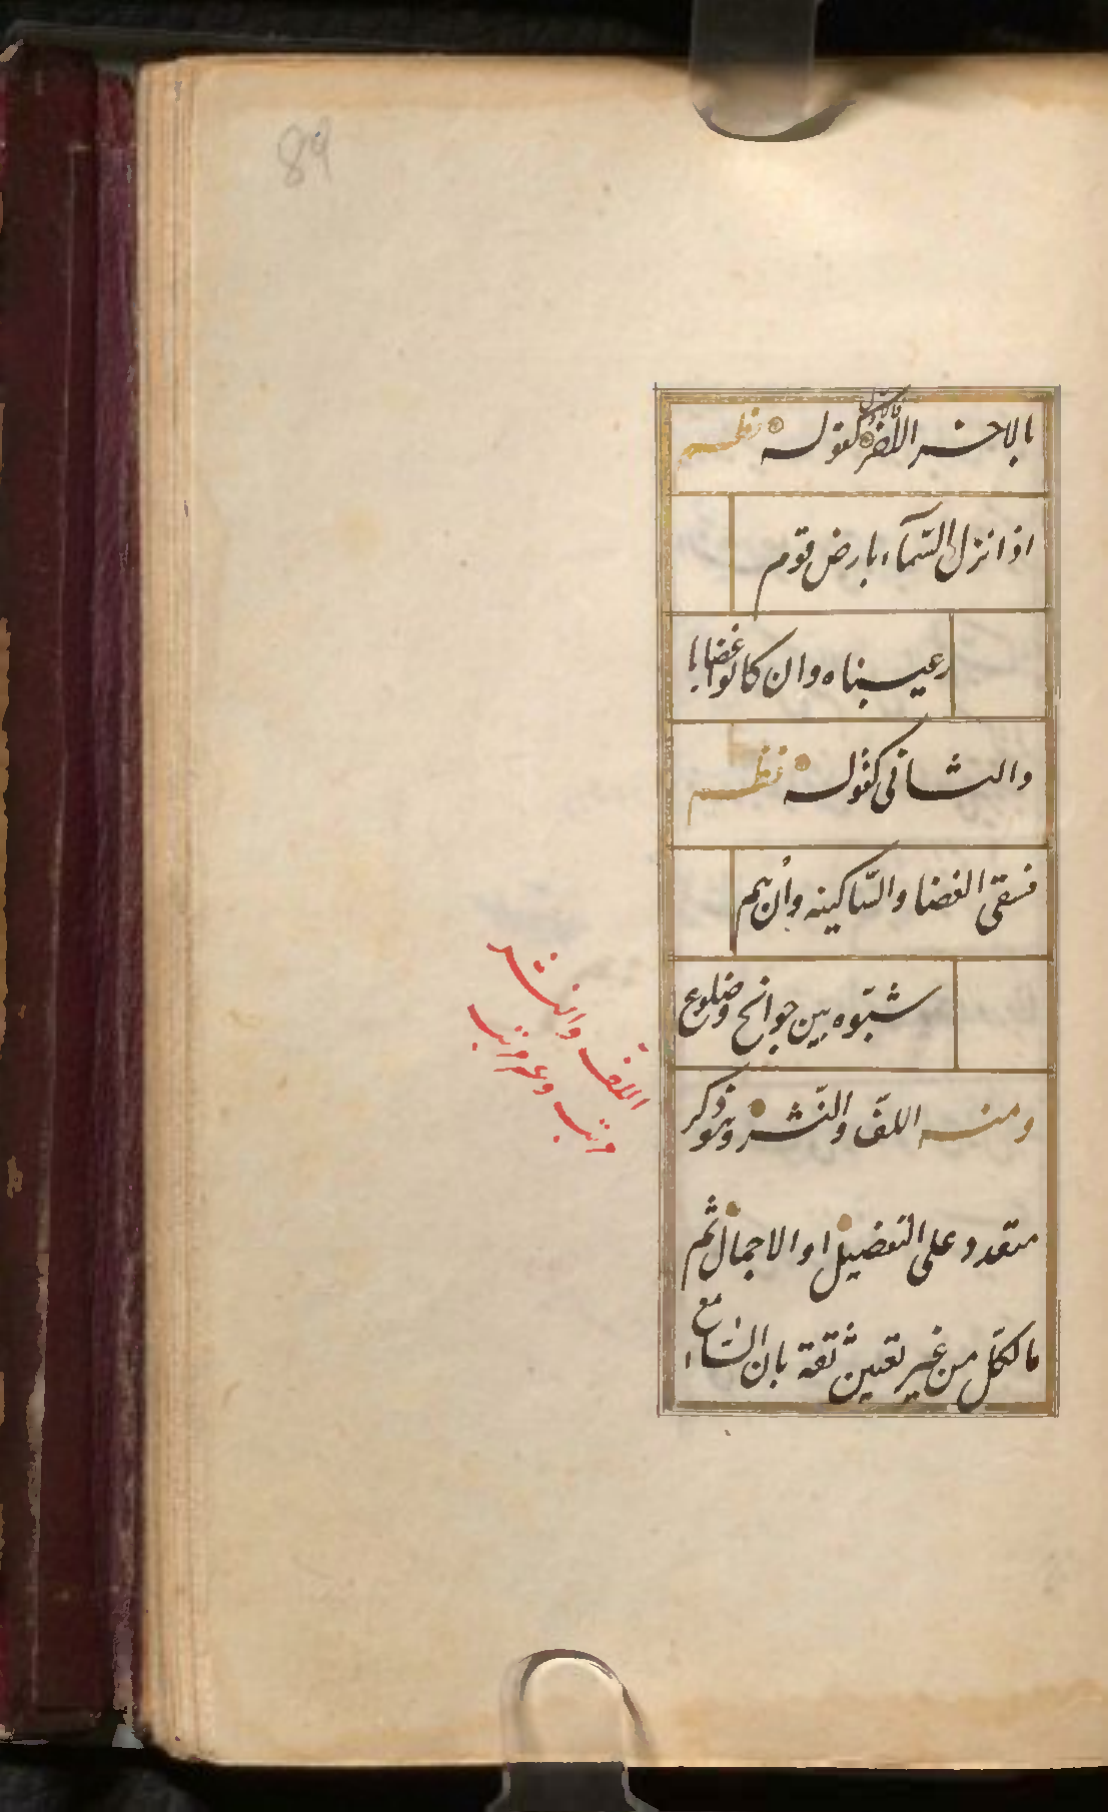 89
بالاخر الاخر فالاول كقوله نظم
اذا نزل السّمآء بارض قوم
رعيناه وان كانوا غضابا
والثانى كقوله نظم
فسقى الغضا والسّاكنيه وان هم
شبّوه بين جوانح وضلوع
ومنه اللفّ والنّشر وهو ذكر
متعدد على التفصيل او الاجمال ثم
ما لكلّ من غير تعيين ثقة بان السّامع
اللفّ والنشر
مرتب وغير مرتب